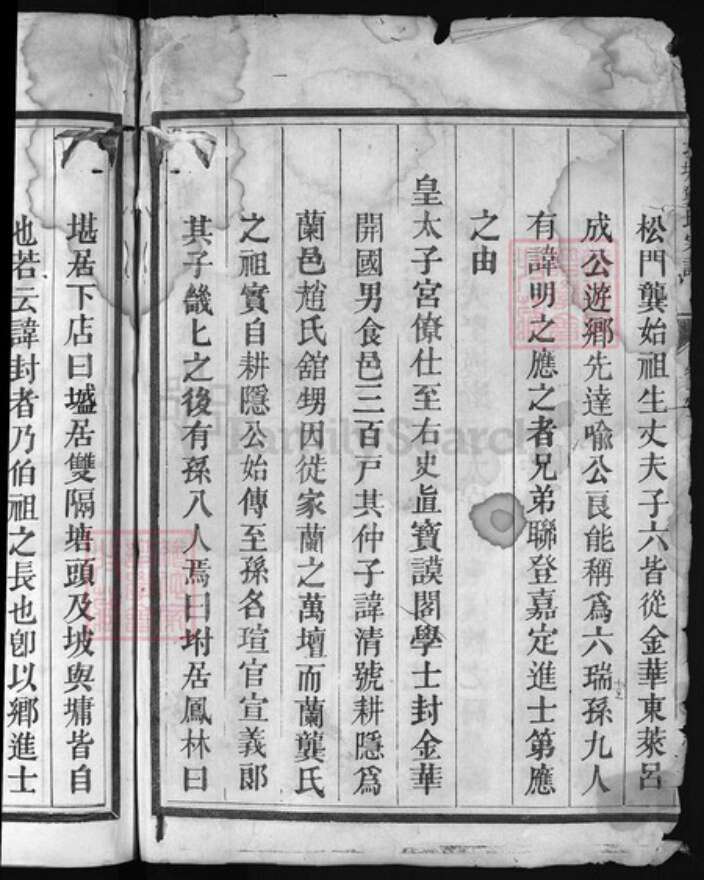 松門龔始祖生丈夫子六皆從金華東萊呂
成公遊鄉先達喩公良能稱爲六瑞孫九人
有諱明之應之者兄弟聯登嘉定進士第應
之由
皇太子宮僚仕至右史直寶謨閣學士封金華
開國男食邑三百戸其仲子諱清號耕隱爲
蘭邑趙氏舘甥因徙家蘭之萬壇而蘭龔氏
之祖實自耕隱公始傳至孫名瑄官宣義郎
其子畿七之後有孫八人焉曰坿居鳳林曰
堪居下店曰壚居雙隔塘頭及坡與墉皆自
也若云諱封者乃伯祖之長也卽以鄉進士
FamilySearch